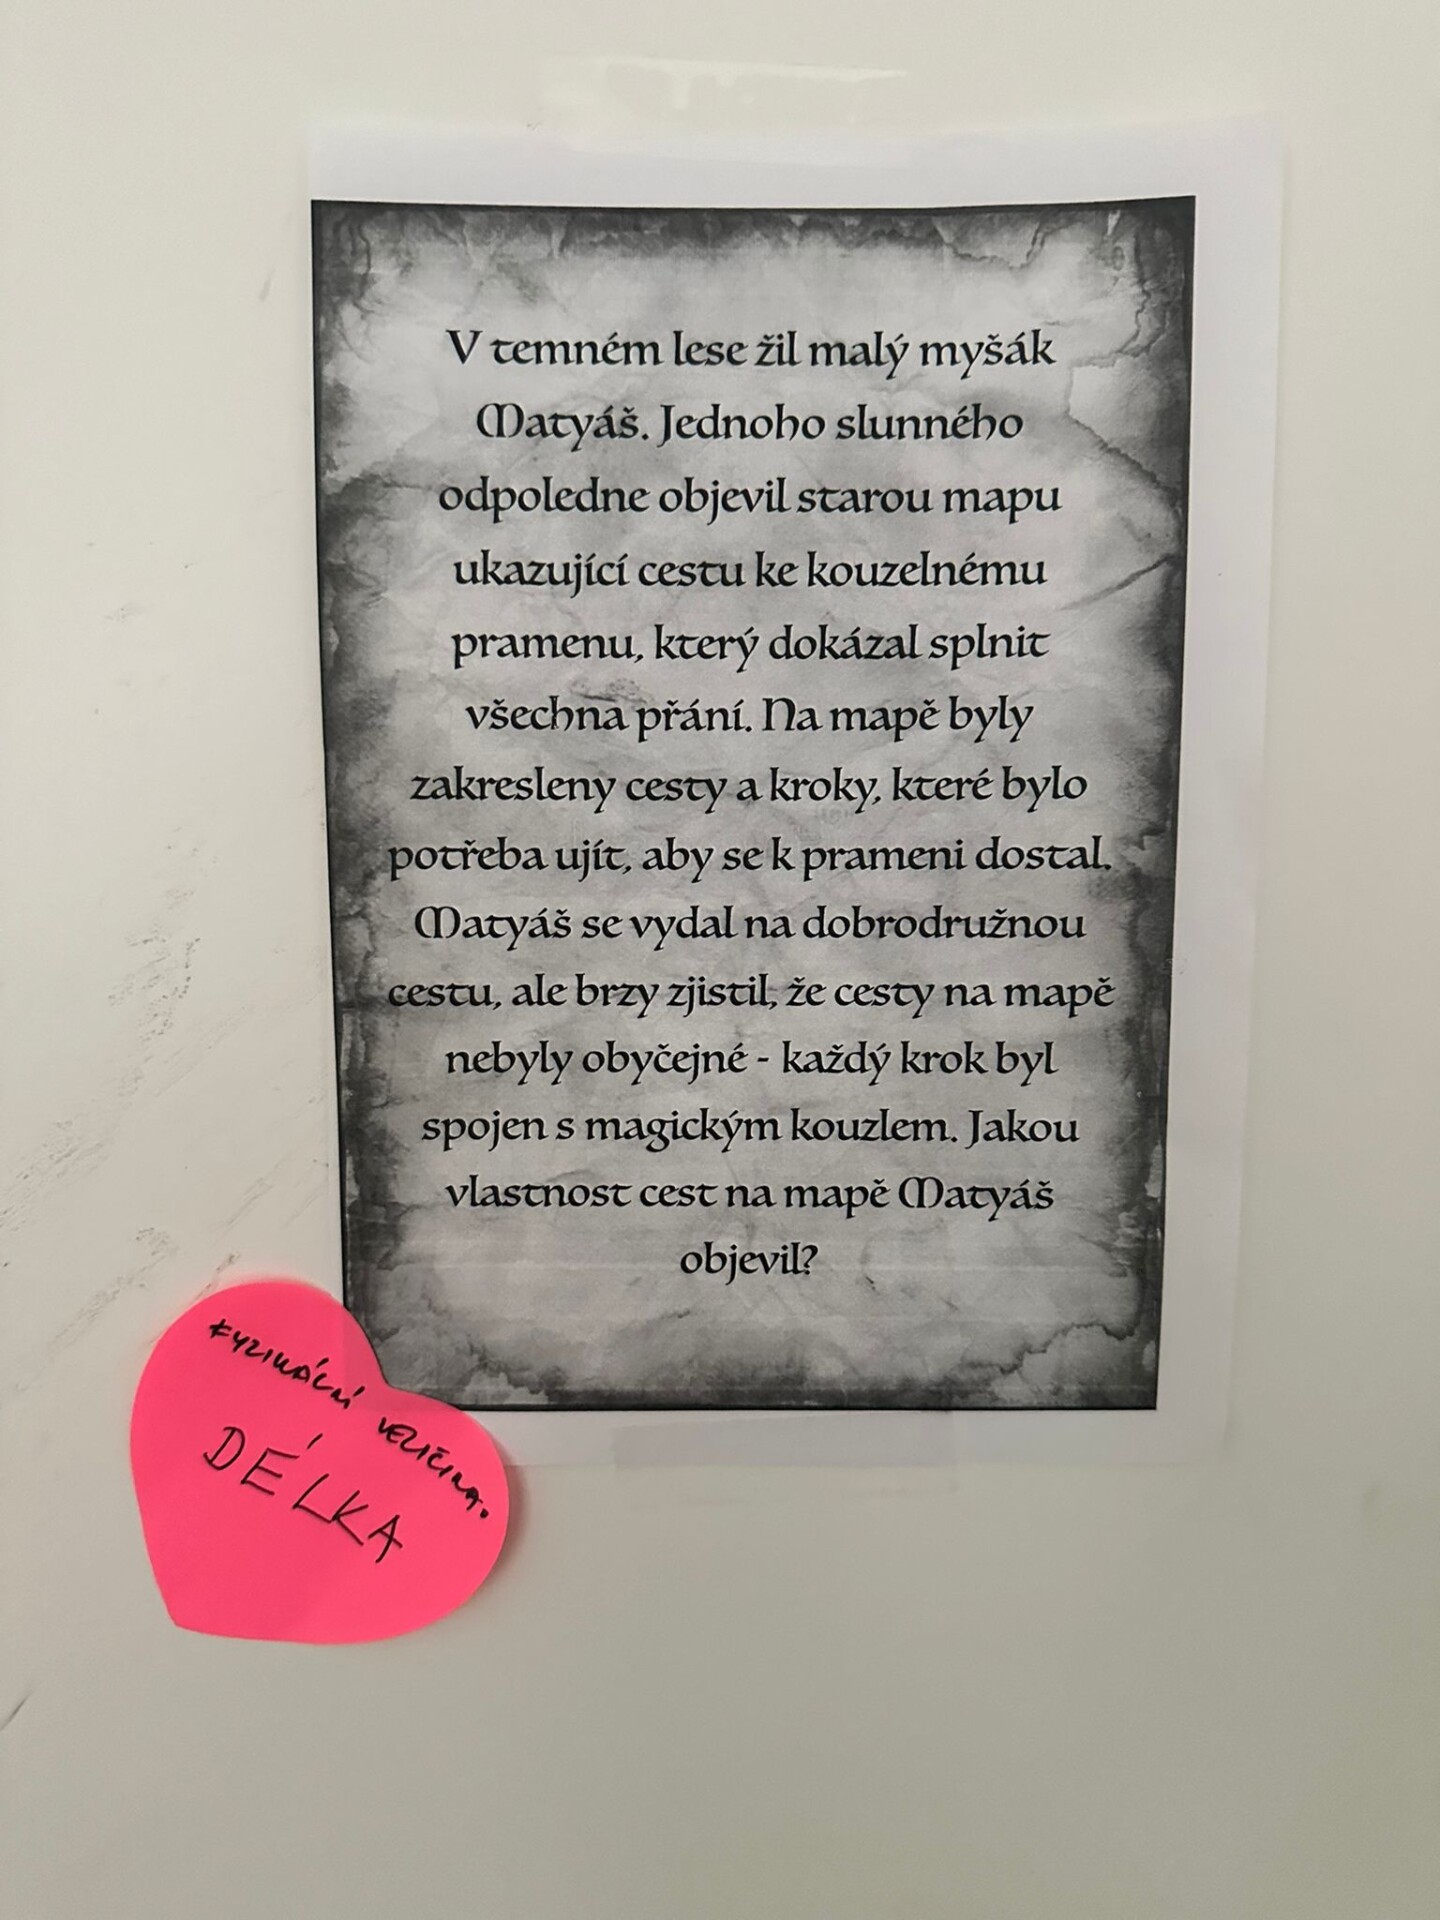 V temném lese žil malý myšák
Matyáš. Jednoho slunného
odpoledne objevil starou mapu
ukazující cestu ke kouzelnému
pramenu, který dokázal splnit
všechna přání. Na mapě byly
zakresleny cesty a kroky, které bylo
potřeba ujít, aby se k prameni dostal.
Matyáš se vydal na dobrodružnou
cestu, ale brzy zjistil, že cesty na mapě
nebyly obyčejné - každý krok byl
spojen s magickým kouzlem. Jakou
vlastnost cest na mapě Matyáš
objevil?
FYZIKÁLNÍ VELIČINA.
DÉLKA